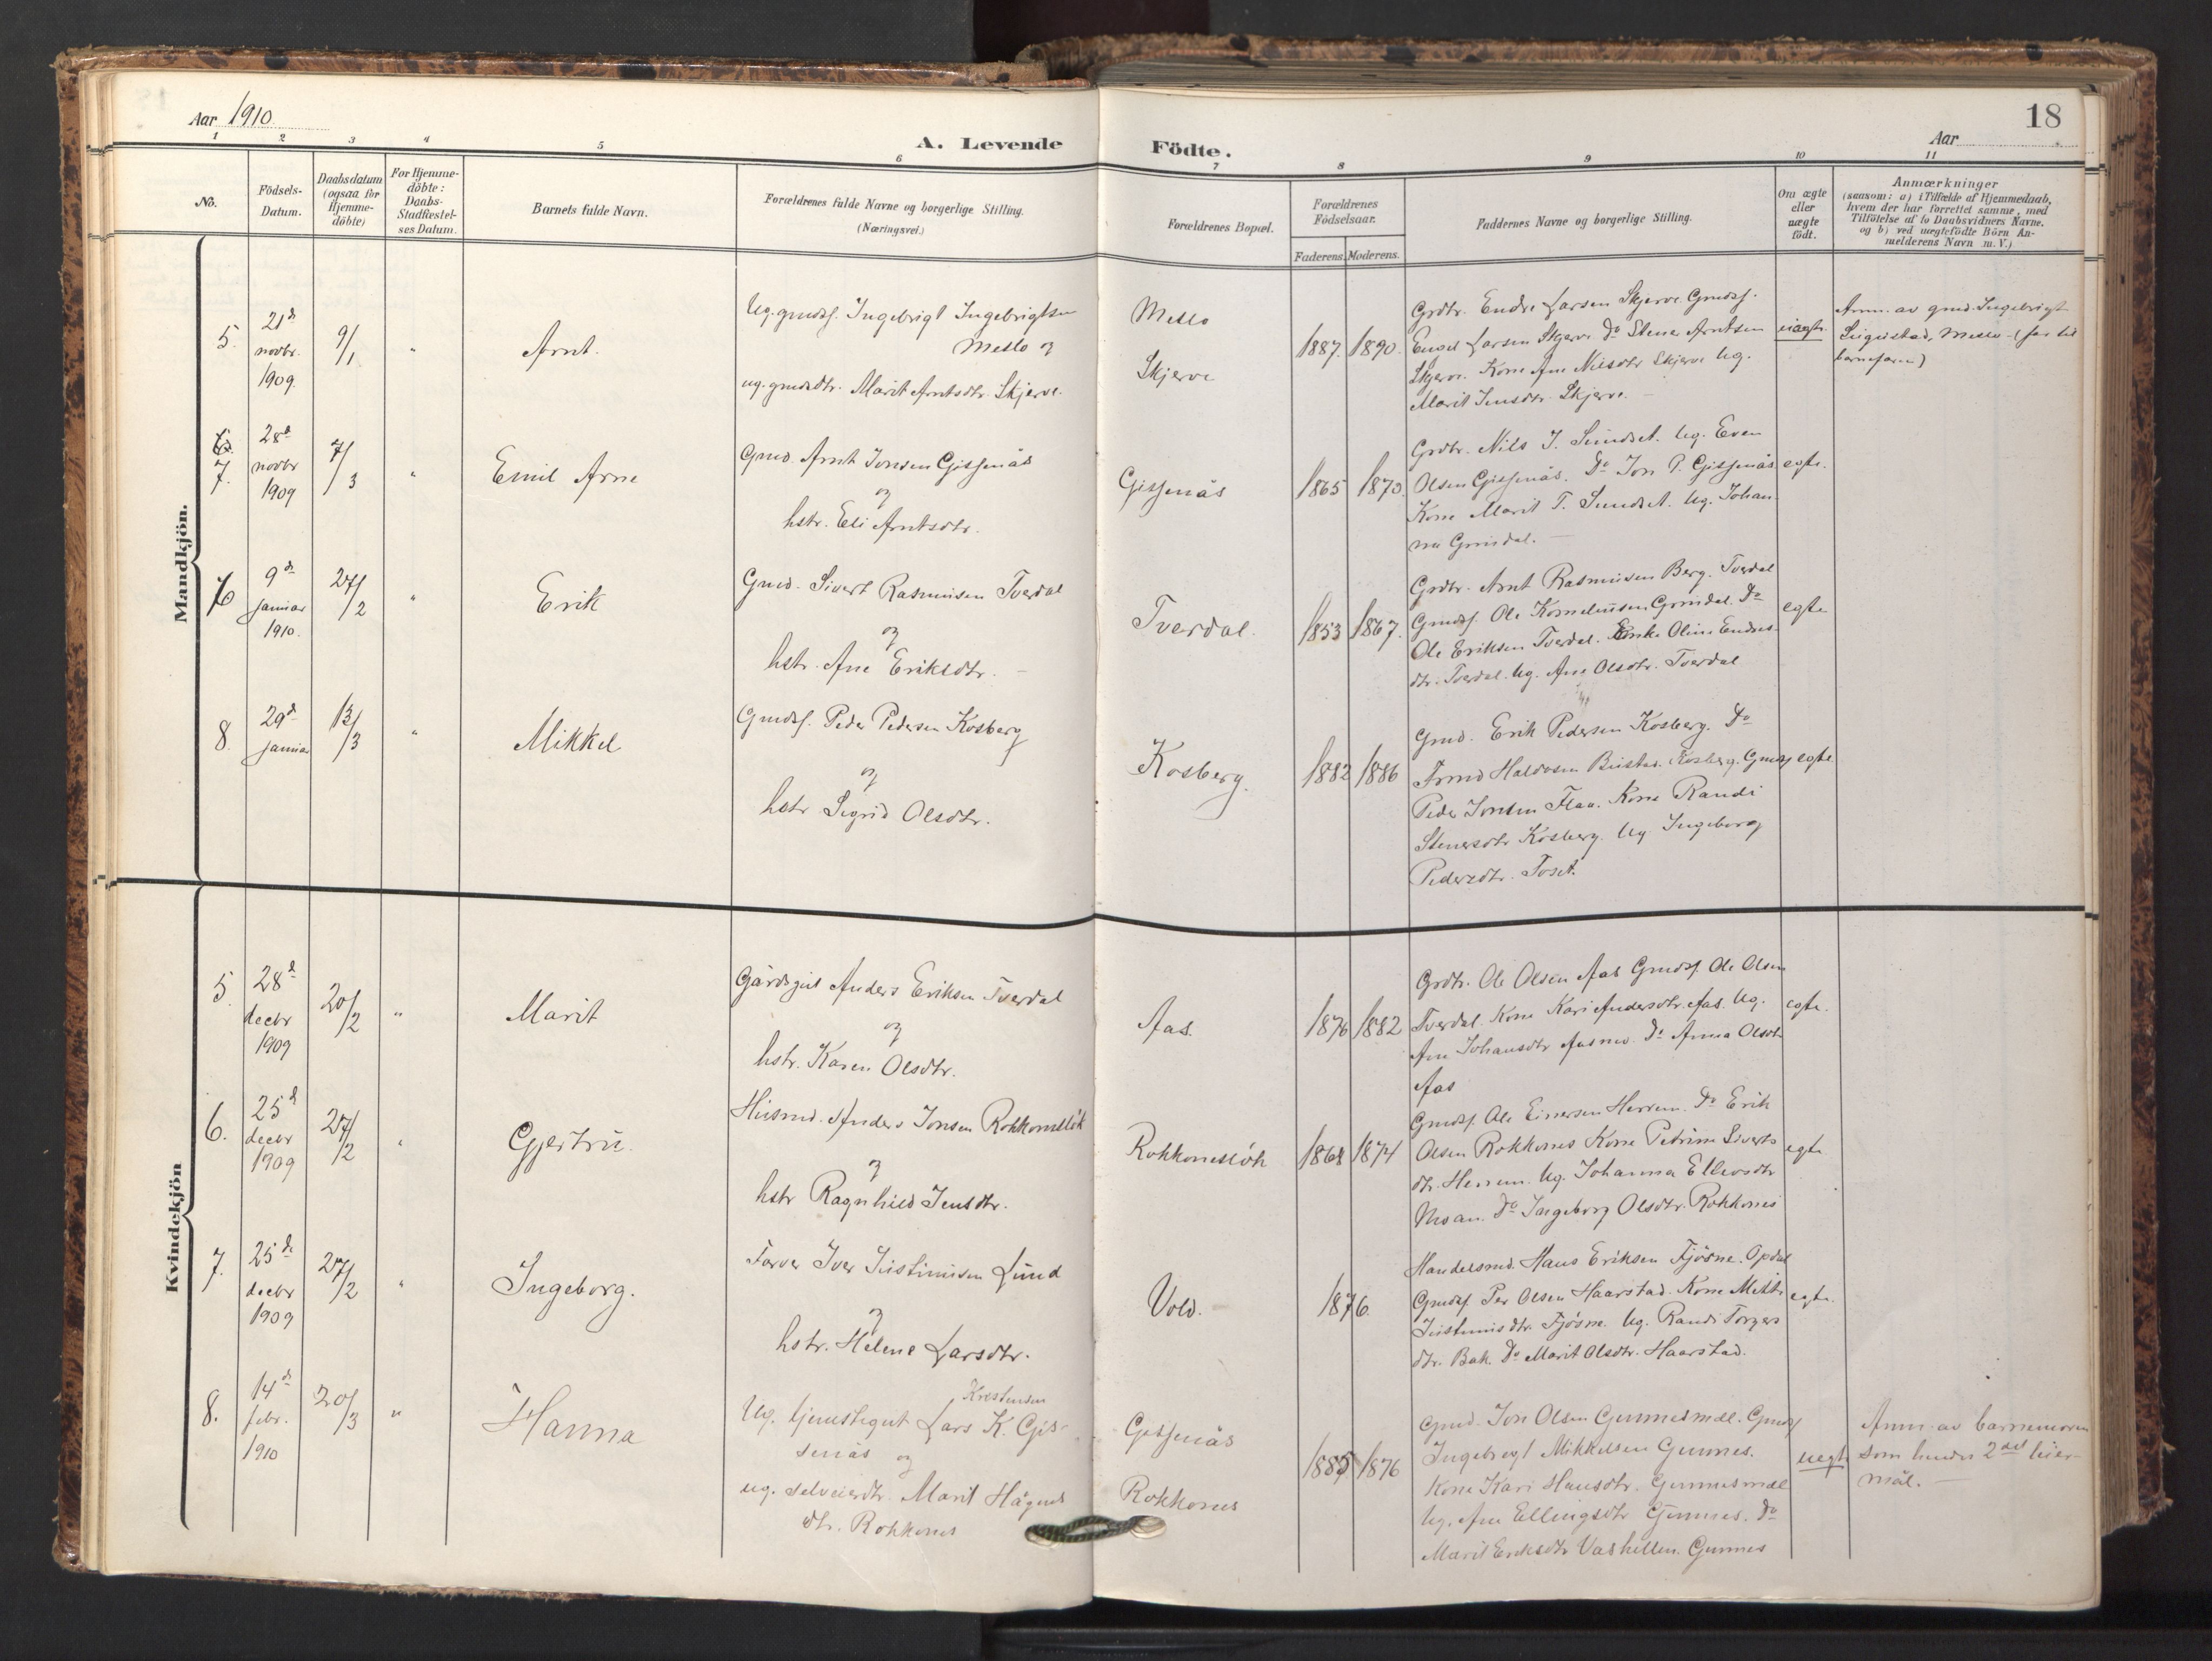 Aar 1910.
A. Levende Födte.
Aar
18
1 2 3 4 5 6 7 8 9 10 11
No.
Födsels-Datum.
Daabsdatum (ogsaa for Hjemme-döbte)
For Hjemme-döbte: Daabs-Stadfæstel-ses Datum.
Barnets fulde Navn.
Forældrenes fulde Navne og borgerlige Stilling. (Næringsvei.)
Forældrenes Bopæl.
Forældrenes Födselsaar.
Faderens. Moderens.
Faddernes Navne og borgerlige Stilling.
Om ægte eller uægte födt.
Anmærkninger
(saasom: a) i Tilfælde af Hjemmedaab, hvem der har forrettet samme, med Tilföielse af to Daabsvidners Navne. og b) ved uægtefödte Börn An-melderens Navn m. V.)
Mandkjön.
5. 21d novbr. 1909. 9/1 " Arnt.
Ug. grmdsf. Ingebrigt Ingebrigtsen
Meslo og
ug. grmdsdtr. Marit Arntsdtr. Skjerve.
Meslo
Skjerve
1887. 1890.
Grdbr. Endre Larsen Skjerve. Grmdsf.
Larsen Skjerve Do Stener Arntsen
Skjerve. Kone Ane Nilsdtr Skjerve Ug.
Marit Jensdtr. Skjerve.
uægte.
Anm. av grmd. Ingebrigt
Meslo (far til
barnefaren)
7. 28d novbr 1909 7/3 " Emil Arne
Grmd. Arnt Jonsen Gissenås
og
hstr. Eli Arntsdtr.
Gissenås
1865 1870.
Grdbr. Nils J. Sundset. Ug. Even
Olsen Gissenås. Do Jon P. Gissenås
Kone Marit T. Sundset. Ug. Johan-
na Grindal.
egte.
6 9de januar 1910. 27/2 " Erik
Grmd. Sivert Rasmusen Tverdal
og
hstr. Ane Eriksdtr.
Tverdal.
1853 1867.
Grdbr. Arnt Rasmusen Berg. Tverdal
Grmdsf. Ole Korneliusen Grindal. Do
Ole Eriksen Tverdal. Enke Oline Endres-
dtr. Tverdal. Ug. Ane Olsdtr. Tverdal
egte
8. 29d januar 13/3 " Mikkel
Grmdsf. Peder Pedersen Kosberg
og
hstr Sigrid Olsdtr.
Kosberg.
1882 1886
Grmd. Erik Pedersen Kosberg. Do
Haldosen Kosberg. Grmdsf
Peder Jonsen Flaa. Kone Randi
Stenersdtr Kosberg. Ug. Ingeborg
Pedersdtr. Toset.
egte
Kvindekjön
5. 28d decbr 1909 20/2 " Marit
Gårdsgut Anders Eriksen Tverdal
og
hstr. Karen Olsdtr.
Aas.
1876 1882
Grdbr. Ole Olsen Aas Grmdsf. Ole Olsen
Tverdal. Kone Kari Andersdtr. Aas. Ug.
Ane Johansdtr Do Anna Olsdtr
Aas
egte.
6. 25d decbr 1909 27/2 " Gjertru.
Husmd. Anders Jonsen Rokkoneslök
og
hstr Ragnhild Jensdtr.
Rokkoneslök
1868 1874
Grmdsf. Ole Einersen Herrem. Do Erik
Olsen Rokkones Kone Petrine Siverts-
dtr. Herrem. Ug. Johanna Ellevsdtr
Moan. Do Ingeborg Olsdtr. Rokkones
egte
7. 25de decbr 1909 27/2 " Ingeborg.
Farver Iver Iustinusen Lund
og
hstr. Helene Larsdtr.
Vold.
1876.
Handelsmd. Hans Eriksen Fjösne. Opdal
Grmdsf. Per Olsen Haarstad. Kone Mekki
Iustinusdtr. Fjösne. Ug. Randi Torgers
dtr. Bak. Do Marit Olsdtr. Haarstad.
egte.
8. 14de febr. 1910 20/3 " Hanna
Krestensen
Ug. tjenstegut Lars K. Gis-
senås og
ug. selveierdtr. Marit Hågens
dtr. Rokkones
Gissenås
Rokkones
1885 1876
Grmd. Jon Olsen Gunnesmæl. Grmdsf
Ingebregt Mikkelsen Gunnes.
Kone Kari Hansdtr. Gunnesmæl
Ug. Ane Ellingsdtr Gunnes. Do
Marit Eriksdtr Gunnes
uegte
Anm. av barnemoren
som hendes 2det leier-
mål.